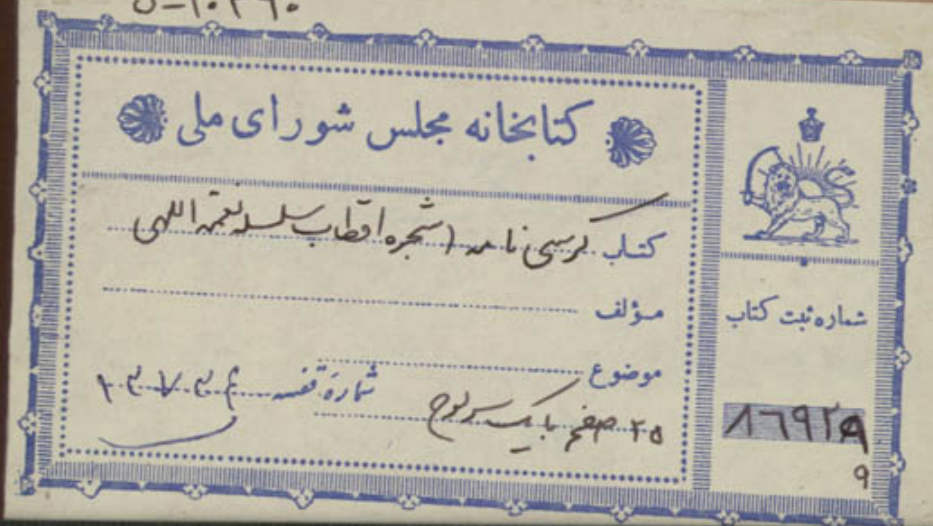 کتابخانه مجلس شورای ملی
کتاب کرسی نامه (شجره اقطاب سلسله نعمة اللهی
مؤلف
موضوع
شماره قفسه
۲۵ صفحه با یک سرلوح
شماره ثبت کتاب
۸۶۹۲۹
۹